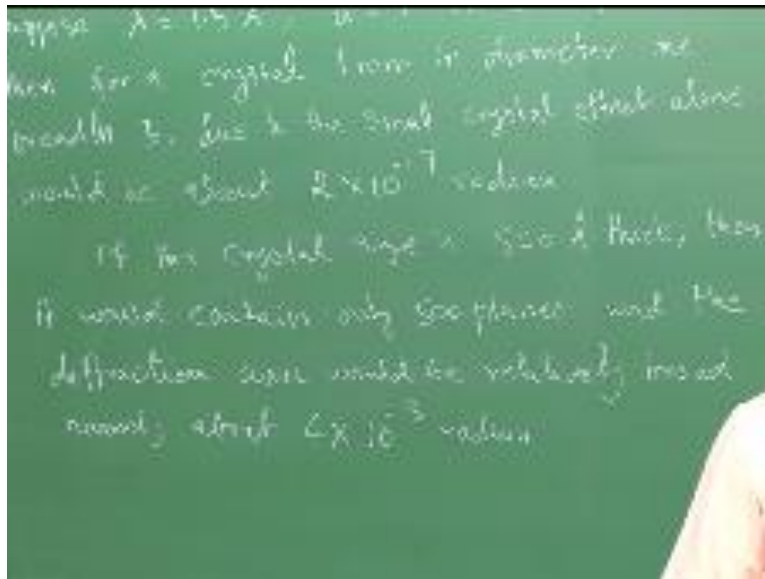 suppose λ = 1.5 Å,
then for a crystal 1 mm in diameter the
breadth B, due to the small crystal effect alone
would be about 2 × 10⁻⁷ radian
If the crystal size is 500 Å thick, then
it would contain only 500 planes and the
diffraction would be relatively broad
namely about 4 × 10⁻³ radian